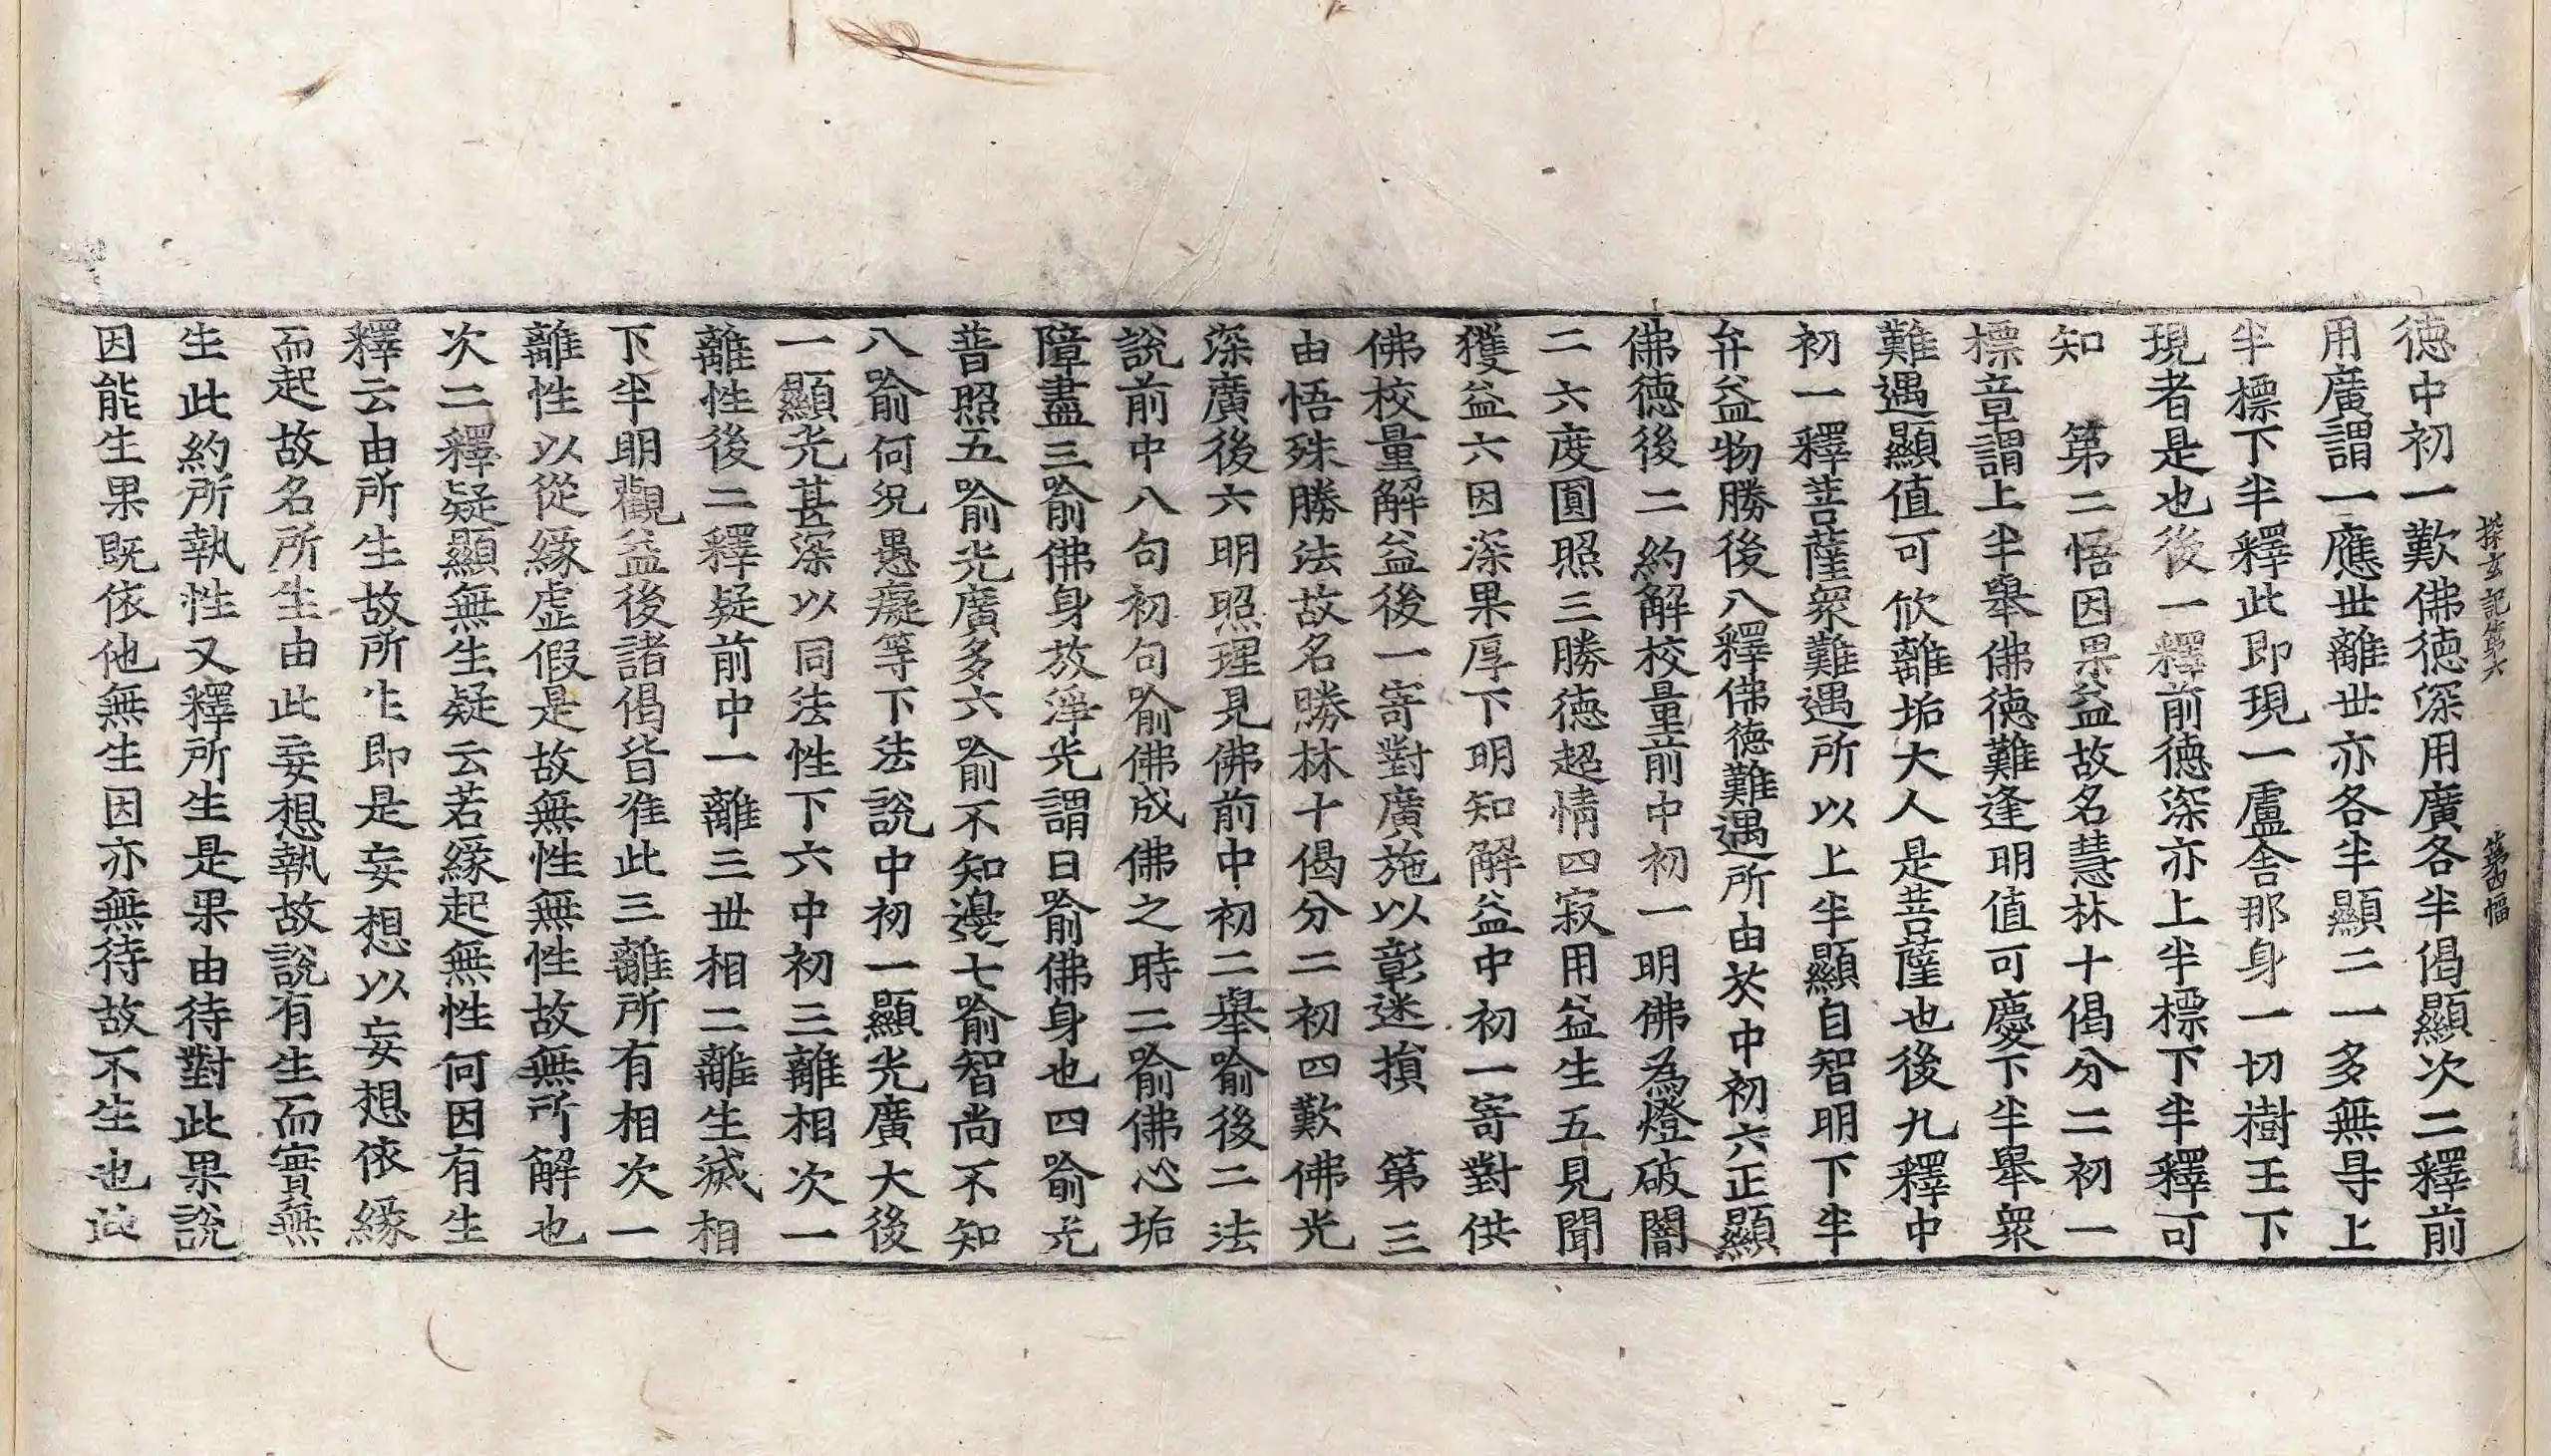 探玄記第六 第四幅
德中初一歎佛德深用廣各半偈顯次二釋前
用廣謂一應世離世亦各半顯二一多無㝵上
半標下半釋此即現一盧舍那身一切樹王下
現者是也後一釋前德深亦上半標下半釋可
知 第二悟因果益故名慧林十偈分二初一
標章謂上半舉佛德難逢明值可慶下半舉衆
難遇顯值可欣離垢大人是菩薩也後九釋中
初一釋菩薩衆難遇所以上半顯自智明下半
弁益物勝後八釋佛德難遇所由於中初六正顯
佛德後二約解校量前中初一明佛為燈破闇
二六度圓照三勝德超情四寂用益生五見聞
獲益六因深果厚下明知解益中初一寄對供
佛校量解益後一寄對廣施以彰迷損 第三
由悟殊勝法故名勝林十偈分二初四歎佛光
深廣後六明照理見佛前中初二舉喻後二法
說前中八句初句喻佛成佛之時二喻佛心垢
障盡三喻佛身放淨光謂日喻佛身也四喻光
普照五喻光廣多六喻不知邊七喻智尚不知
八喻何況愚癡等下法說中初一顯光廣大後
一顯光甚深以同法性下六中初三離相次一
離性後二釋疑前中一離三世相二離生滅相
下半明觀益後諸偈皆准此三離所有相次一
離性以從緣虛假是故無性無性故無所解也
次二釋疑顯無生疑云若緣起無性何因有生
釋云由所生故所生即是妄想以妄想依緣
而起故名所生由此妄想執故說有生而實無
生此約所執性又釋所生是果由待對此果說
因能生果既依他無生因亦無待故不生也此